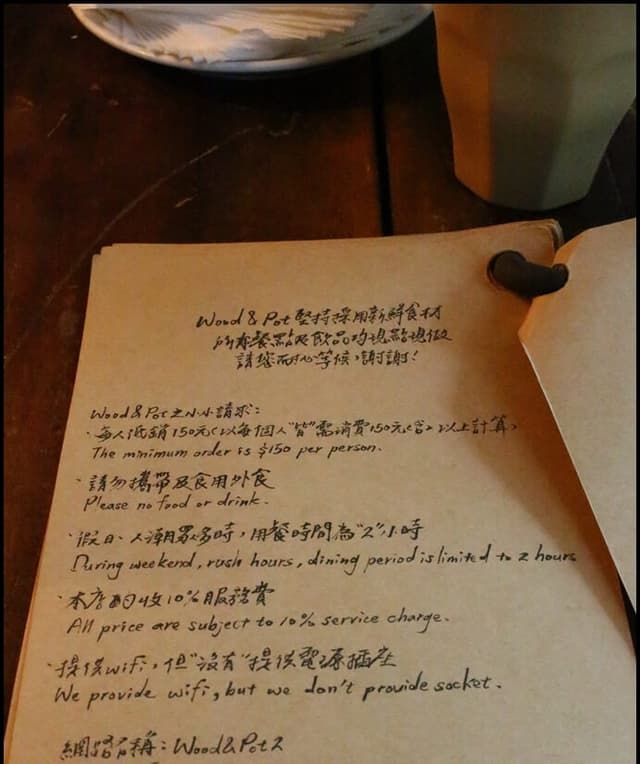 Wood & Pot 堅持採用新鮮食材
所有餐點及飲品均現點現做
請您耐心等候，謝謝！
Wood & Pot之小小請求：
·每人低銷150元<以每個人"皆"需消費150元<含>以上計算>
The minimum order is $150 per person.
·請勿攜帶及食用外食
Please no food or drink.
·假日、人潮眾多時，用餐時間為"2"小時
During weekend, rush hours, dining period is limited to 2 hours
·本店酌收10%服務費
All price are subject to 10% service charge.
·提供wifi，但"沒有"提供電源插座
We provide wifi, but we don't provide socket.
網路名稱：Wood&Pot2